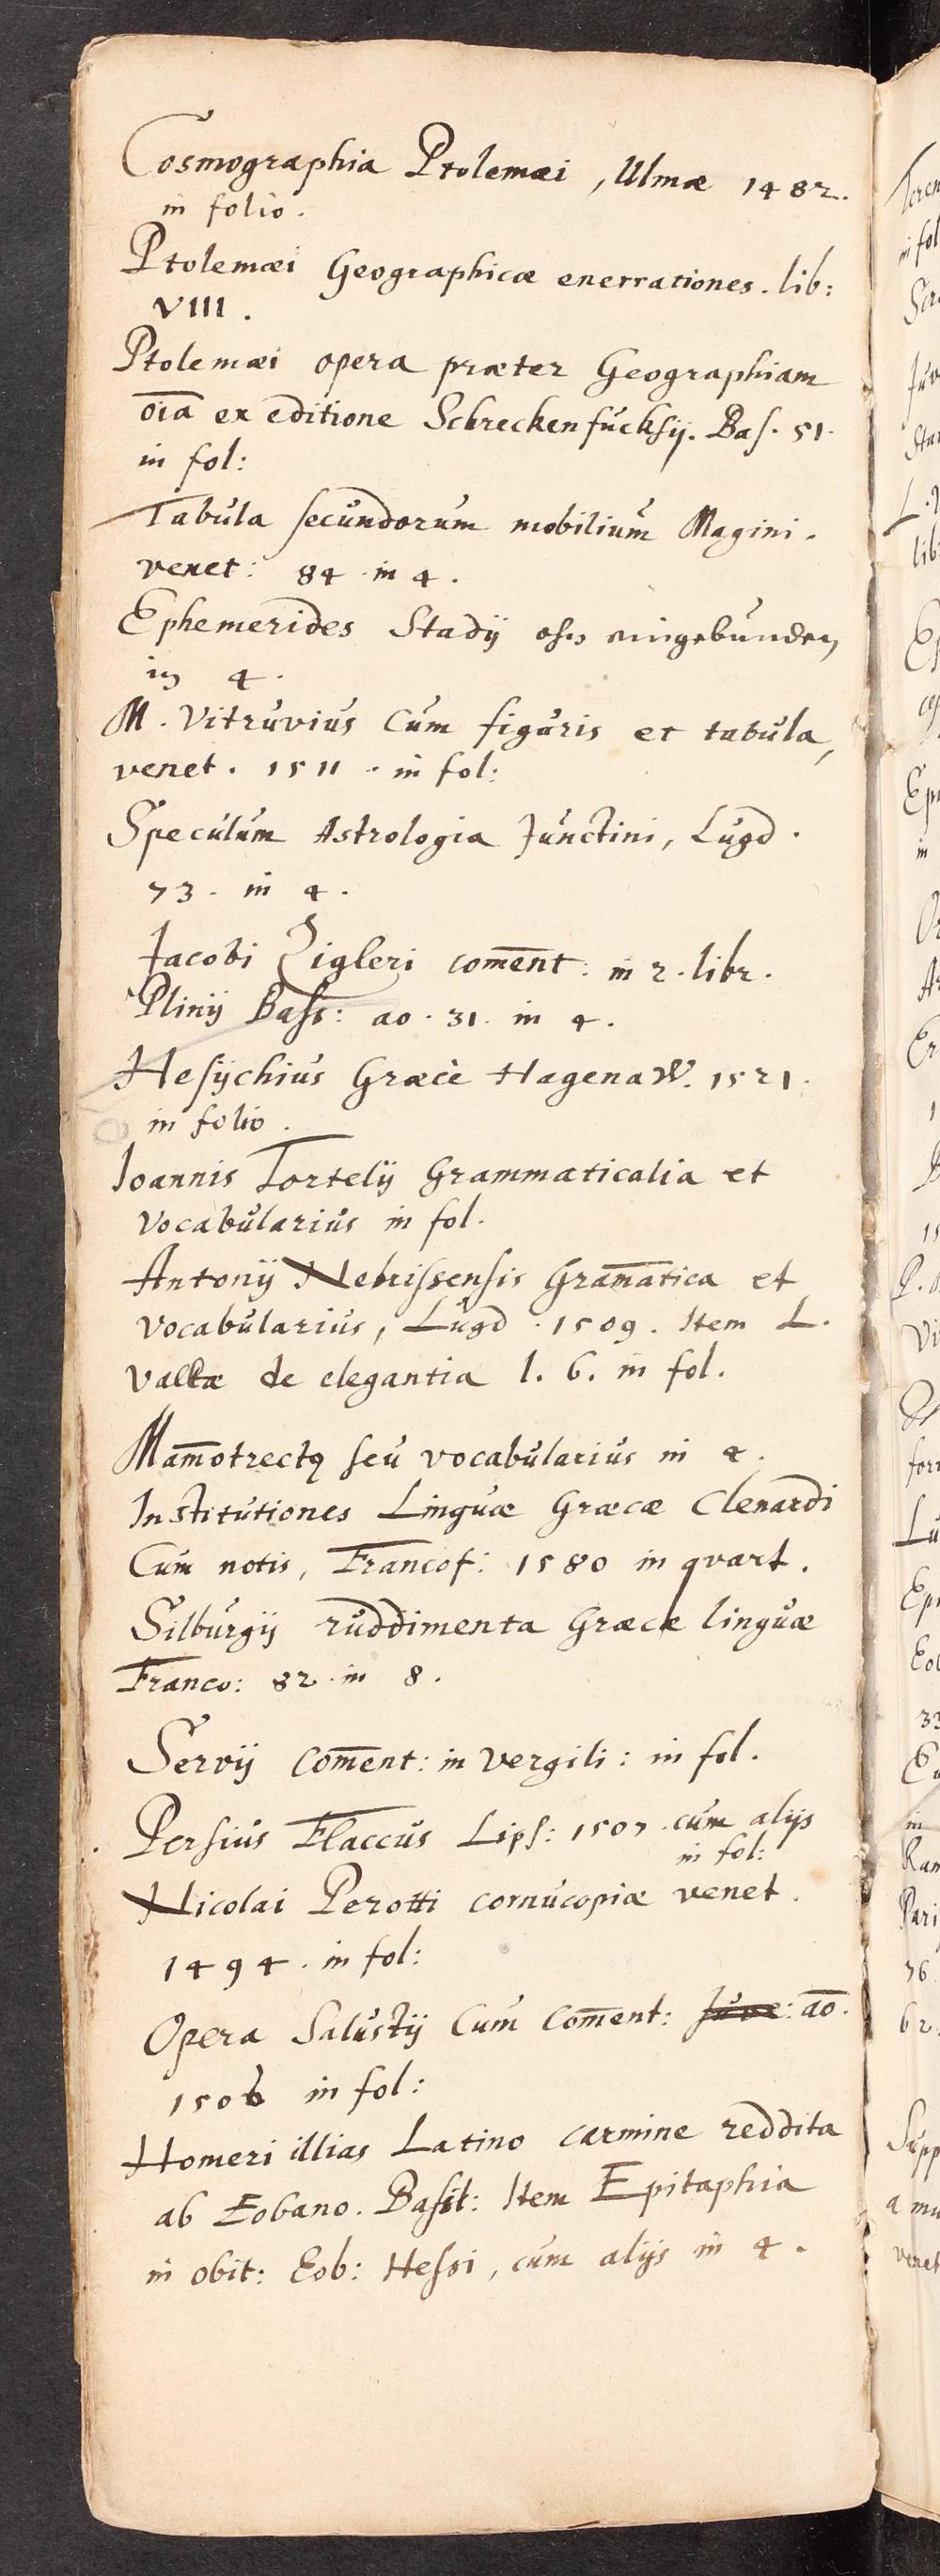 Cosmographia Ptolemæi, Ulmæ 1482.
in folio.
Ptolemæi Geographicæ enerrationes. lib:
VIII.
Ptolemæi opera præter Geographiam
oīa ex editione Schreckenfucksij. Bas. 51.
in fol:
Tabula secundorum mobilium Magini.
venet: 84 in 4.
Ephemerides Stadij ohn eingebunden
in 4.
M. Vitruvius cum figuris et tabula,
venet. 1511. in fol:
Speculum Astrologia Junctini, Lugd.
73. in 4.
Jacobi Zigleri com̄ent: in 2. libr.
Plinij Bass: ao. 31. in 4.
Hesychius Græcè Hagenaw. 1521.
in folio.
Ioannis Tortelij Grammaticalia et
vocabularius in fol.
Antonij Nebrissensis Gram̄atica et
vocabularius, Lugd. 1509. Item L.
vallæ de elegantia l. 6. in fol.
Mam̄otrectꝰ seu vocabularius in 4.
Institutiones Linguæ Græcæ Clenardi
Cum notis, Francof: 1580 in qvart.
Silburgij ruddimenta Græce linguæ
Franco: 82. in 8.
Servij Com̄ent: in Vergili: in fol.
Persius Flaccus Lips: 1507. cum alijs
in fol:
Nicolai Perotti cornucopiæ venet.
1494. in fol:
Opera Salustij Cum Com̄ent: aō.
1506 in fol:
Homeri illias Latino carmine reddita
ab Eobano. Basil: Item Epitaphia
in obit: Eob: Hessi, cum alijs in 4.